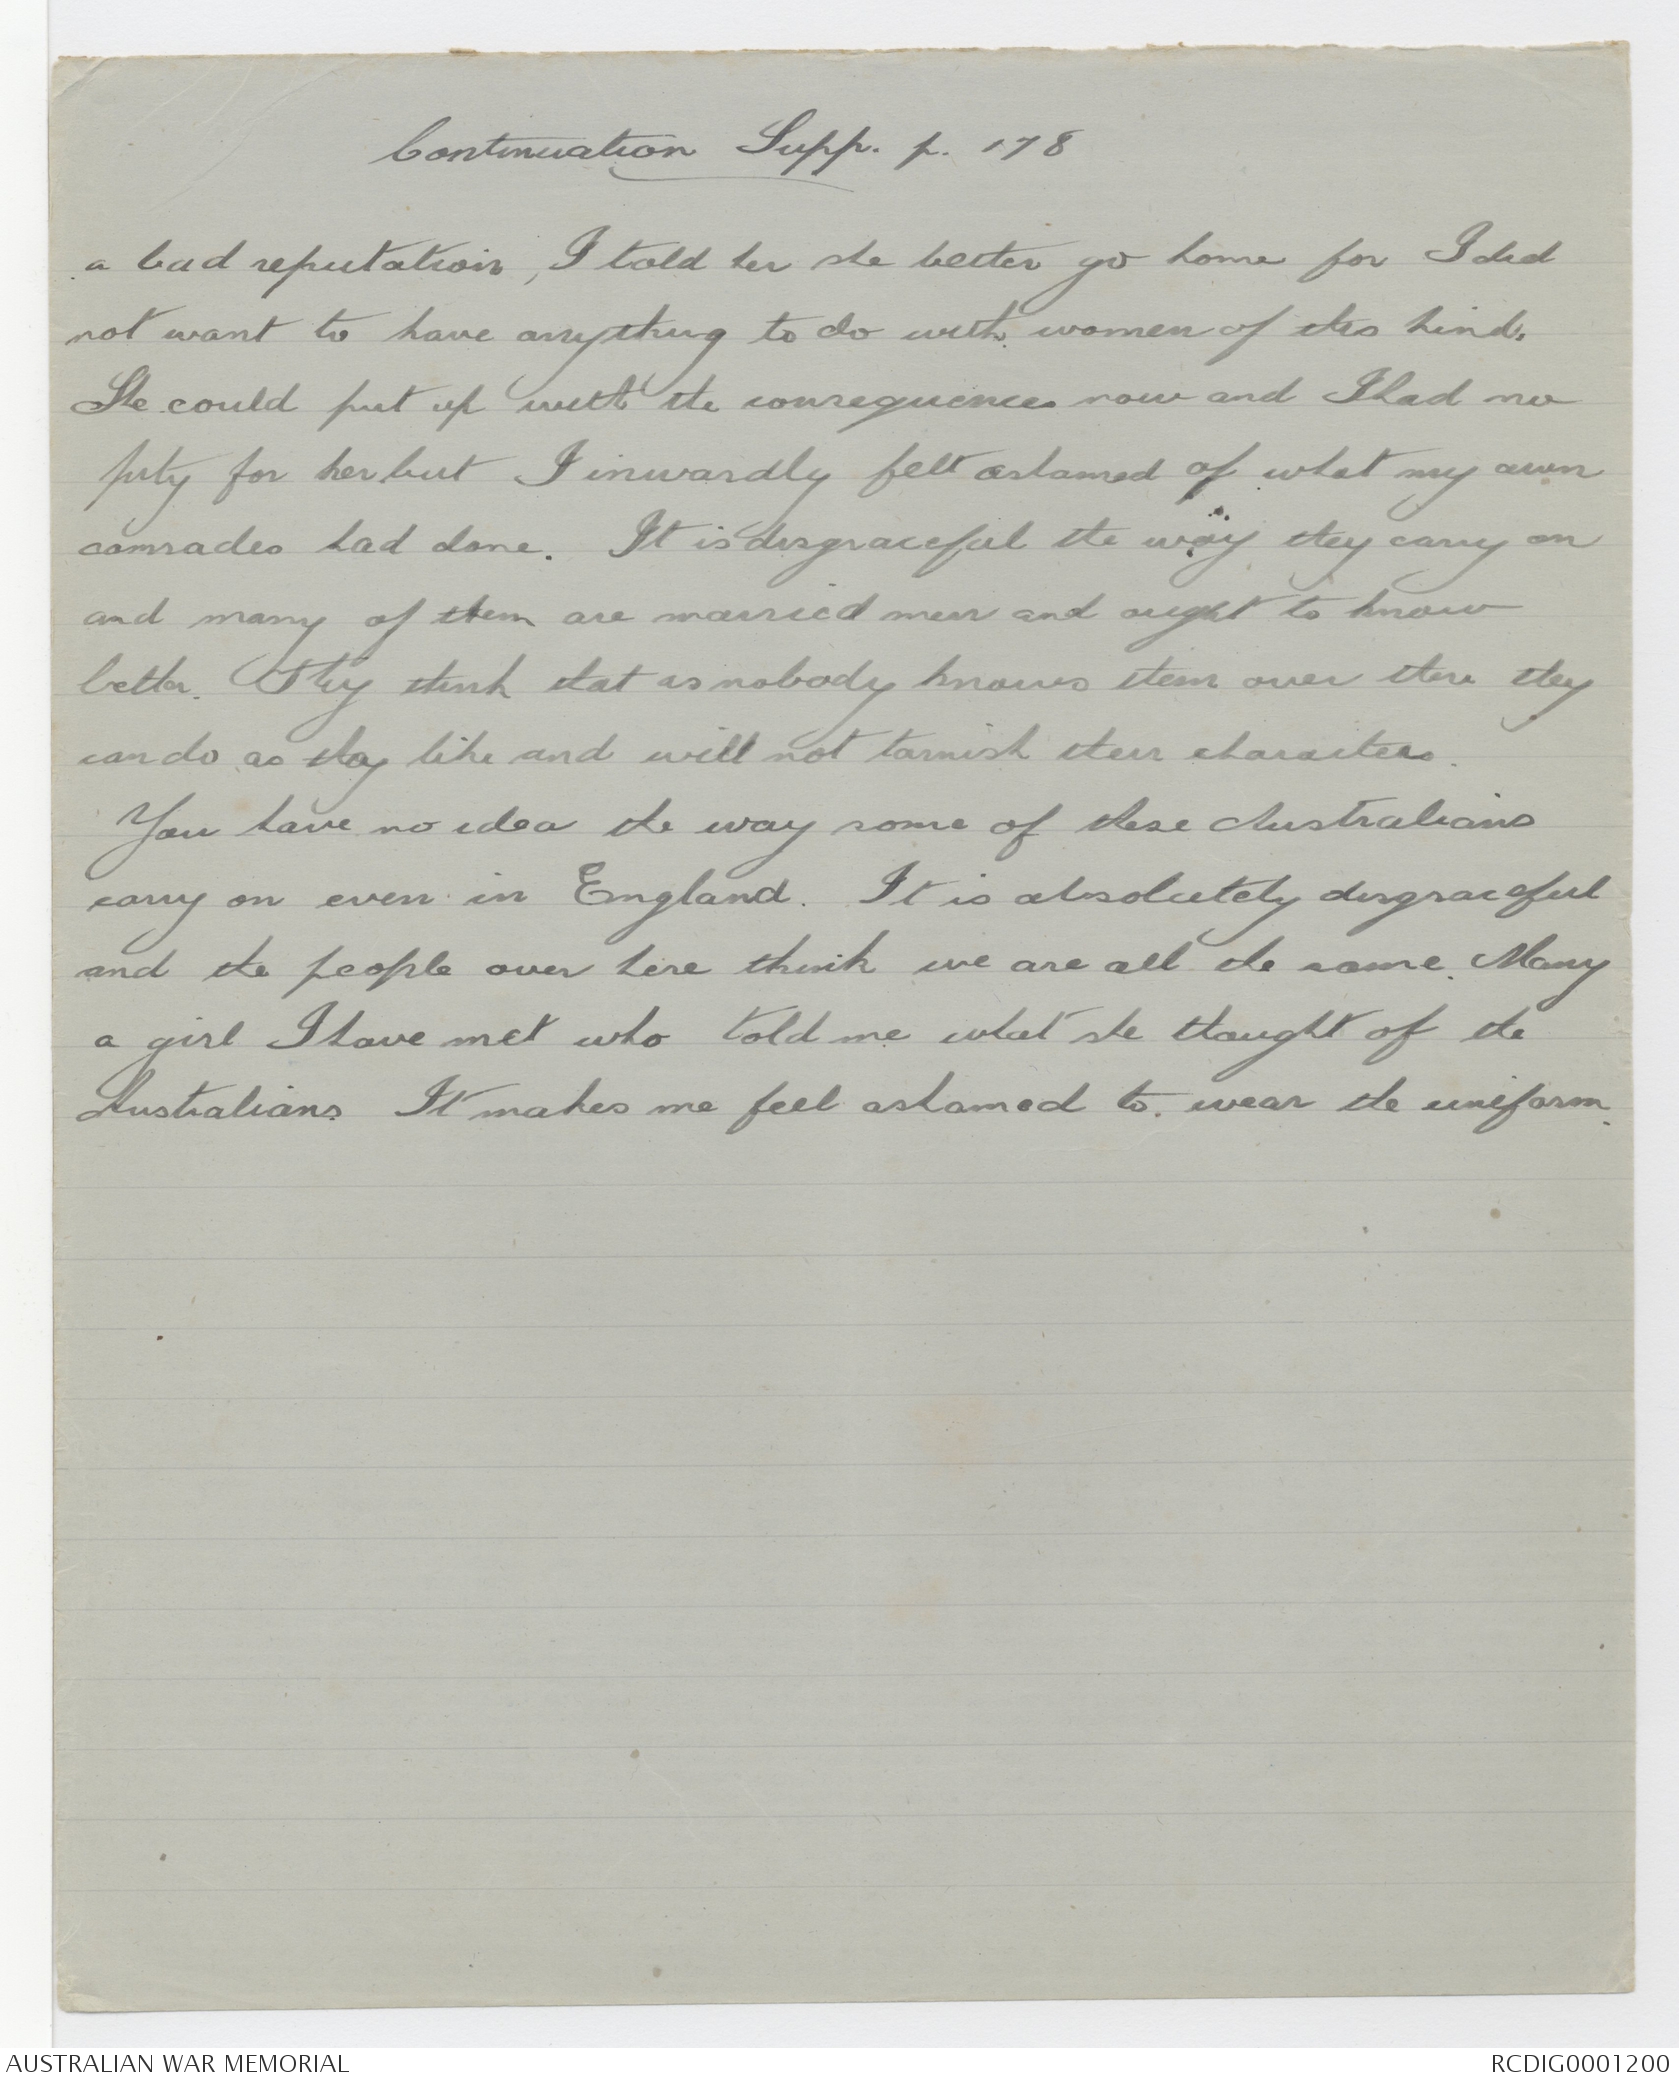 Continuation Supp. p. 178
a bad reputation, I told her she better go home for I did
not want to have anything to do with women of this kind.
She could put up with the consequences now and I had no
pity for her but I inwardly felt ashamed of what my own
comrades had done. It is disgraceful the way they carry on
and many of them are married men and ought to know
better. They think that as nobody knows them over there they
can do as they like and will not tarnish their characters.
You have no idea the way some of these Australians
carry on even in England. It is absolutely disgraceful
and the people over here think we are all the same. Many
a girl I have met who told me what she thought of the
Australians. It makes me feel ashamed to wear the uniform.
AUSTRALIAN WAR MEMORIAL
RCDIG0001200